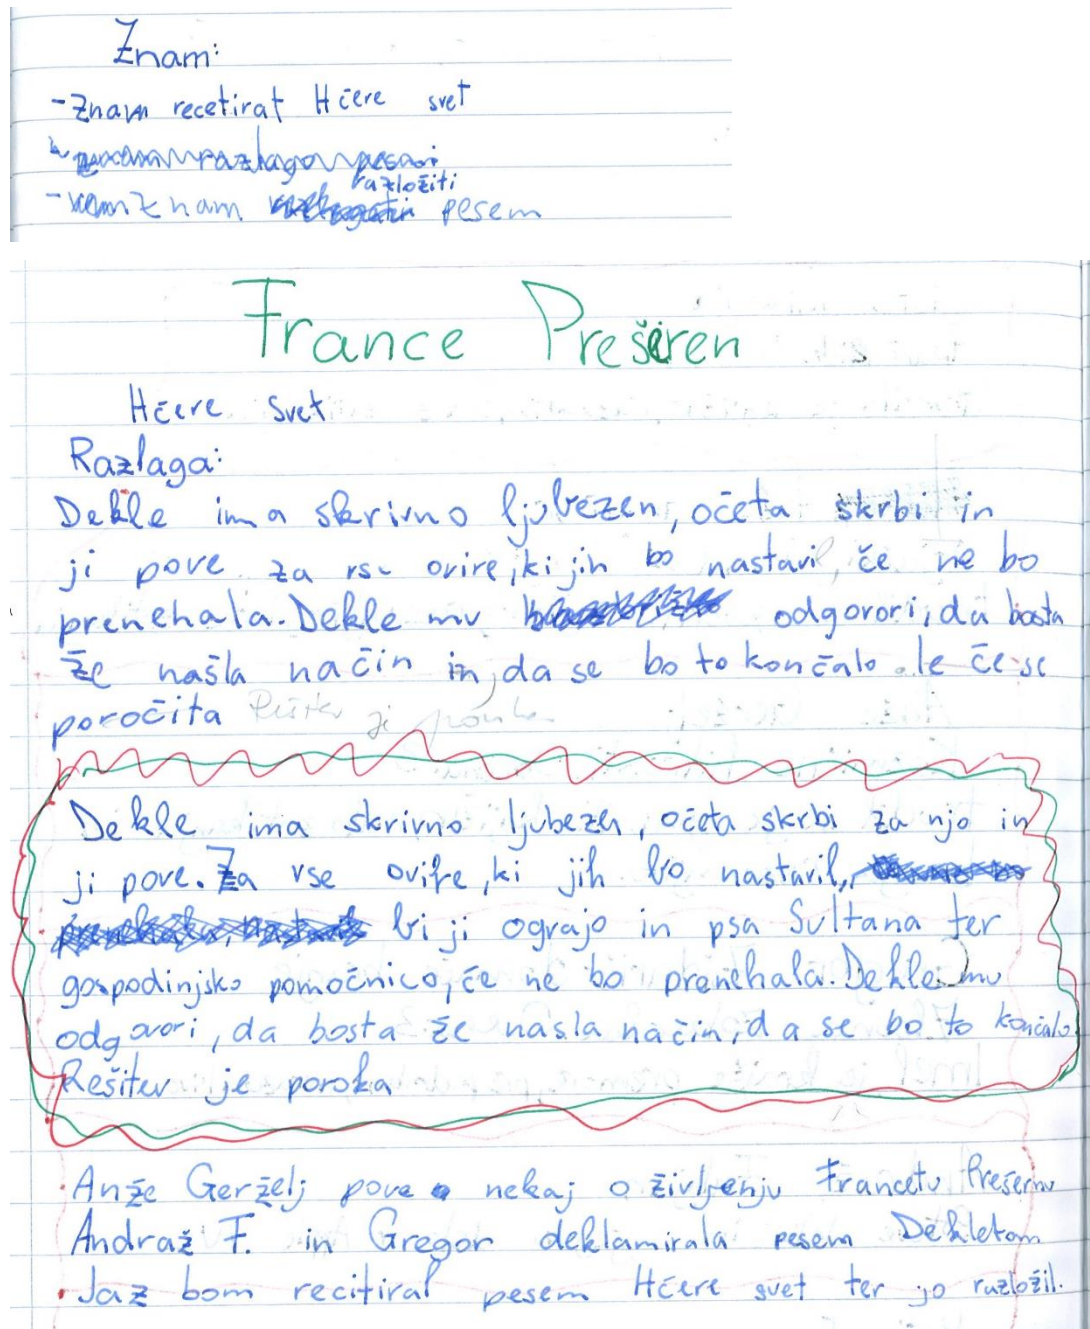 Znam:
- Znam recetirat Hčere svet
razlago pesmi
- znam razložiti pesem
France Prešeren
Hčere svet
Razlaga:
Dekle ima skrivno ljubezen, očeta skrbi in
ji pove za vse ovire, ki jih bo nastavil, če ne bo
prenehala. Dekle mu odgovori, da bosta
že našla način in da se bo to končalo le če se
poročita Rešitev je poroka
Dekle ima skrivno ljubezen, očeta skrbi za njo in
ji pove. Za vse ovire, ki jih bo nastavil,
bi ji ograjo in psa Sultana ter
gospodinjsko pomočnico, če ne bo prenehala. Dekle mu
odgovori, da bosta že našla način, da se bo to končalo
Rešitev je poroka
Anže Gerželj pove nekaj o življenju Francetu Prešernu
Andraž F. in Gregor deklamirala pesem Dekletom
• Jaz bom recitiral pesem Hčere svet ter jo razložil.